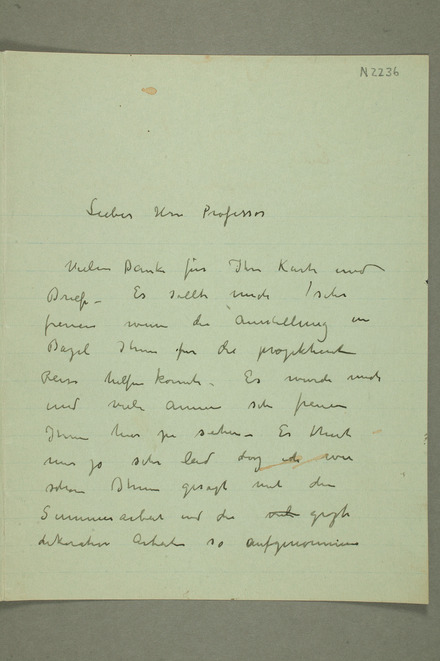 N 2236
Lieber Herr Professor
Vielen Dank für Ihre Karte und
Brief – Es sollte mich sehr
freuen wenn die Ausstellung in
Basel Ihnen für die projektierte
Reise helfen könnte. Es würde mich
und viele andere sehr freuen
Ihnen hier zu sehen – Es thut
mir ja sehr leid dass ich wie
schon Ihnen gesagt mit der
Sommerarbeit und die grosse
dekorative Arbeiten so aufgenommen